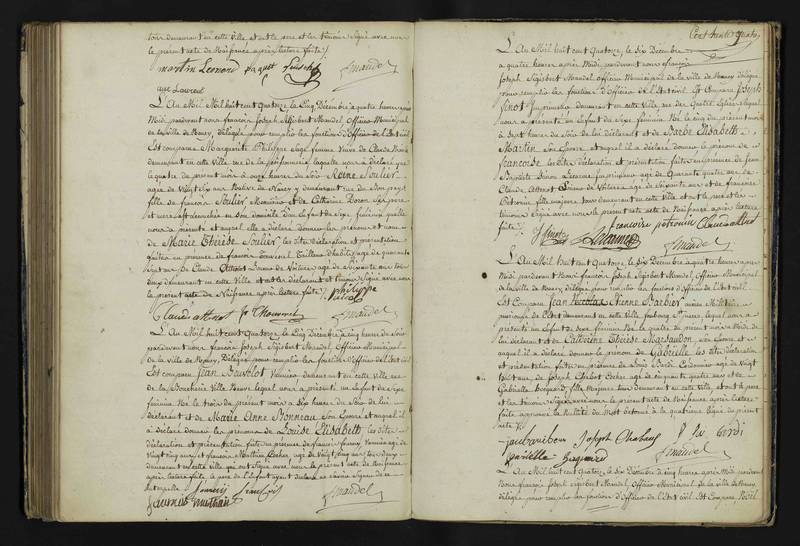 tous demeurant en cette Ville et ont le pere et les témoins Signé avec nous
le présent acte de Naissance après lecture faite
martin Leonard paquet Mandel
L'An Mil huit cent Quatorze, le Cinq Décembre à quatre heures après
Midi, pardevant nous françois Joseph Sigisbert Mandel, Officier Municipal
de la Ville de Nancy, délégué pour remplir les fonctions d'Officier de l'Etat civil
Est comparu Marguerite Philippe Sage femme Veuve de Claude
demeurant en cette Ville, rue de la poissonnerie, laquelle nous a déclaré que
le quatre du présent mois à onze heures du Soir Reine Soulier
agée de Vingt Six ans Native de Nancy y demeurant rue du
fille de francois Soulier et de Catherine Doron Ses pere
et mere est accouchée en Son domicile d'un Enfant de Sexe féminin qu'elle
nous a présenté et auquel elle a déclaré donner les prénoms et nom
de Marie Thérèse Soulier, les dites déclaration et présentation
faites en présence de francois Thouvenel Tailleur d'habits agé de quarante
Sept ans et de Claude Attenot Loueur de Voitures agé de Soixante ans tous
deux demeurant en cette Ville et ont les déclarant et témoins Signé avec nous
le présent acte de Naissance après lecture faite philippe
Claude attenot fr Thouvenel Mandel
L'An Mil huit cent Quatorze, le Cinq Décembre à cinq heures du Soir
pardevant nous françois Joseph Sigisbert Mandel, Officier Municipal
de la Ville de Nancy, délégué pour remplir les fonctions d'Officier de l'Etat civil
Est comparu Jean demeurant en cette Ville rue
de la Boucherie Ville Neuve lequel nous a présenté un Enfant de Sexe
féminin Né le trois du présent mois à Dix heures du Soir de lui
déclarant et de Marie Anne Monneau Son Epouse et auquel il
a déclaré donner les prénoms de Louise Elisabeth les dites
déclaration et présentation faites en présence de francois
vingt cinq ans et francois Mathieu agé de Vingt cinq ans tous deux
demeurant en cette Ville qui ont Signé avec nous le présent acte de Naissance
après lecture faite, le pere de l'enfant ayant déclaré ne savoir Signer de ce
interpellé
francois Mandel
Cent trente quatre
L'An Mil huit cent Quatorze, le Six Décembre
à quatre heures après Midi pardevant nous françois
Joseph Sigisbert Mandel Officier Municipal de la Ville de Nancy délégué
pour remplir les fonctions d'Officier de l'Etat civil Est Comparu Joseph
Vinot Imprimeur demeurant en cette Ville, rue des Quatre Eglises lequel
nous a présenté un Enfant de Sexe féminin Né le cinq du présent mois
à Sept heures du Soir de lui déclarant et de Barbe Elisabeth
Martin Son Epouse et auquel il a déclaré donner le prénom de
françoise les dites déclaration et présentation faites en présence de Jean
Baptiste Imprimeur agé de Quarante quatre ans de
Claude Attenot Loueur de Voitures agé de Soixante ans et de francoise
Petronin fille majeure tous demeurant en cette Ville et ont le pere et les
témoins Signé avec nous le présent acte de Naissance après lecture
faite
J Vinot francoise petronin Claude attenot
Mandel
L'An Mil huit cent Quatorze, le Six Décembre à quatre heures après
Midi pardevant Nous françois Joseph Sigisbert Mandel, Officier Municipal
de la Ville de Nancy, délégué pour remplir les fonctions d'Officier de l'Etat civil
Est Comparu Jean Nicolas Etienne Barbier ancien Militaire
pensionné de l'Etat demeurant en cette Ville faubourg St pierre, lequel nous a
présenté un Enfant de Sexe féminin Né le quatre du présent mois à Midi de
lui déclarant et de Catherine Thérèse Margaudon Son Epouse et
auquel il a déclaré donner le prénom de Gabrielle les dites déclaration
et présentation faites en présence de Louis Cordonnier agé de Vingt
huit ans, de Joseph Chabert agé de quarante quatre ans et de
Gabrielle fille majeure tous demeurant en cette Ville et ont le pere
et les témoins Signé avec nous le présent acte de Naissance après lecture
faite approuvé la Nullité du Mot à la quatrième ligne du présent
acte
Joseph Chabert
Mandel
L'An Mil huit cent Quatorze, le Six Décembre à cinq heures après Midi pardevant
Nous françois Joseph Sigisbert Mandel, Officier Municipal de la Ville de Nancy
délégué pour remplir les fonctions d'Officier de l'Etat civil Est Comparu Noël